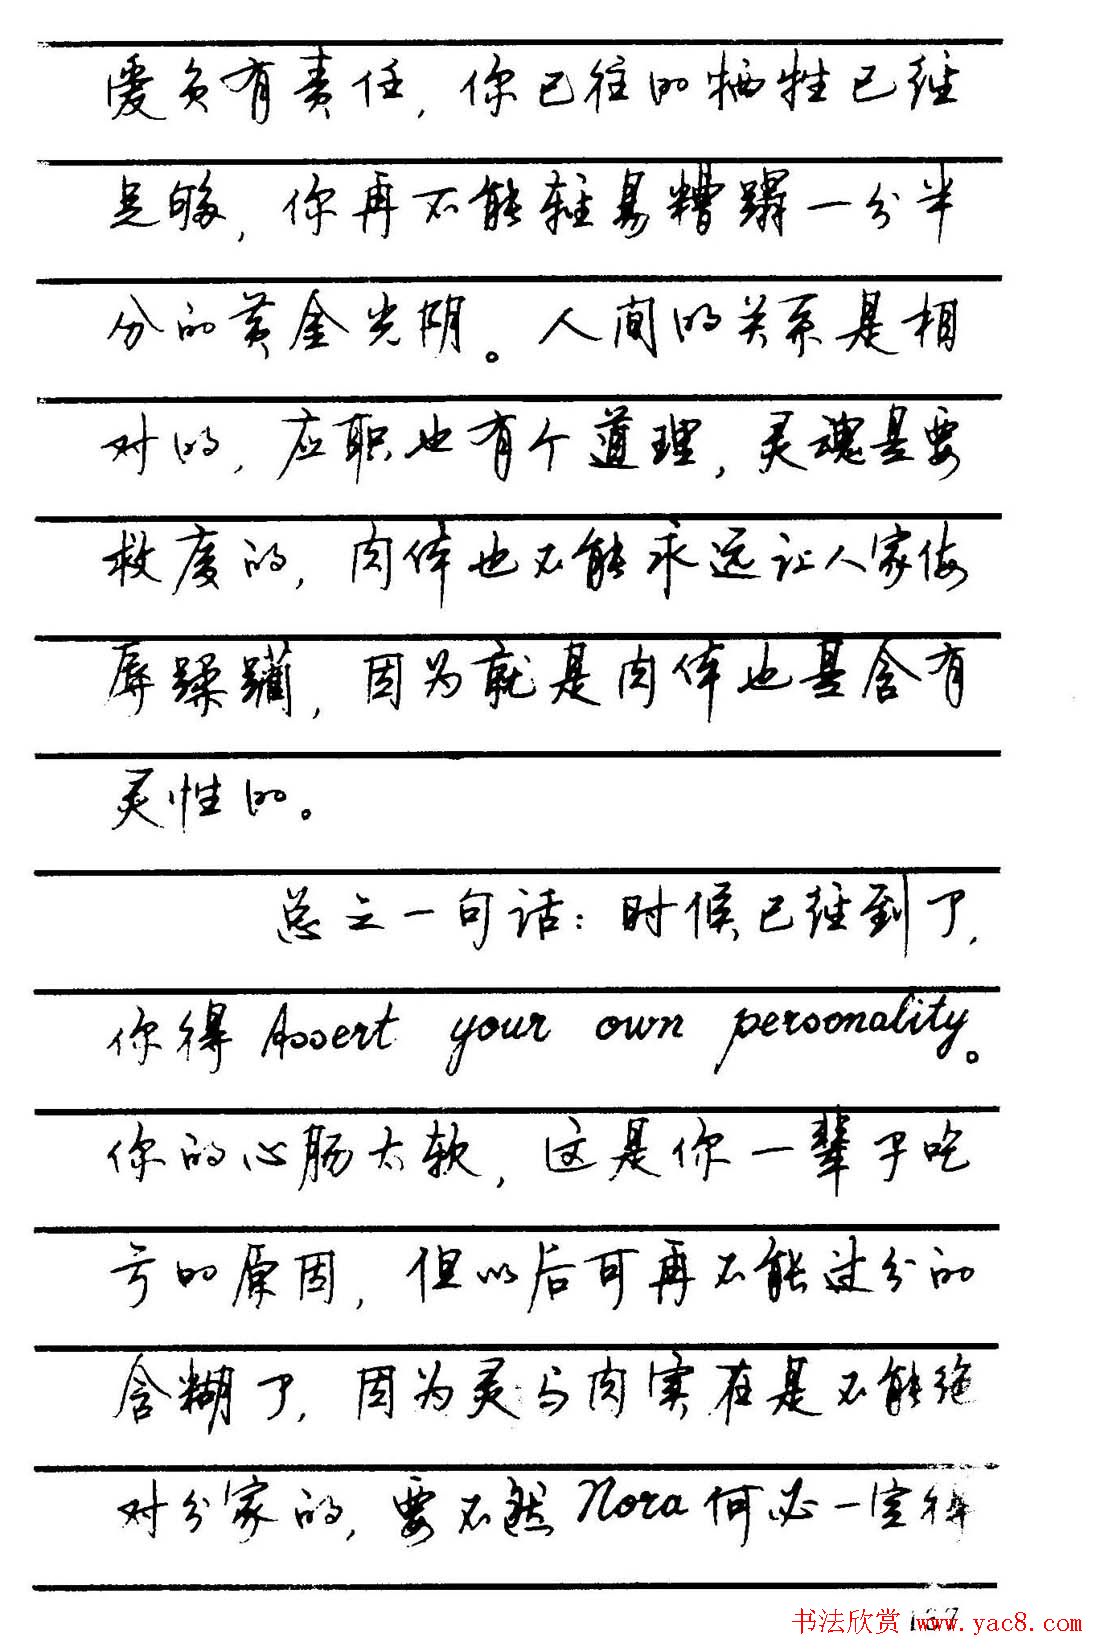 爱负有责任，你已往的牺牲已经
足够，你再不能轻易糟蹋一分半
分的黄金光阴。人间的关系是相
对的，应职也有个道理，灵魂是要
救度的，肉体也不能永远让人家侮
辱蹂躏，因为就是肉体也是含有
灵性的。
总之一句话：时候已经到了，
你得Assert your own personality。
你的心肠太软，这是你一辈子吃
亏的原因，但以后可再不能过分的
含糊了，因为灵与肉实在是不能绝
对分家的，要不然Nora何必一定得
书法欣赏 www.yac8.com